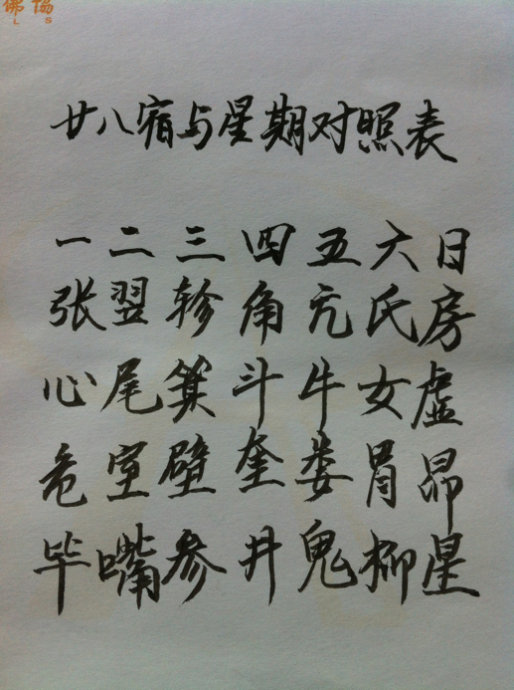 佛協
L S
廿八宿与星期对照表
一二三四五六日
张翌轸角亢氏房
心尾箕斗牛女虚
危室壁奎娄胃昴
毕嘴参井鬼柳星